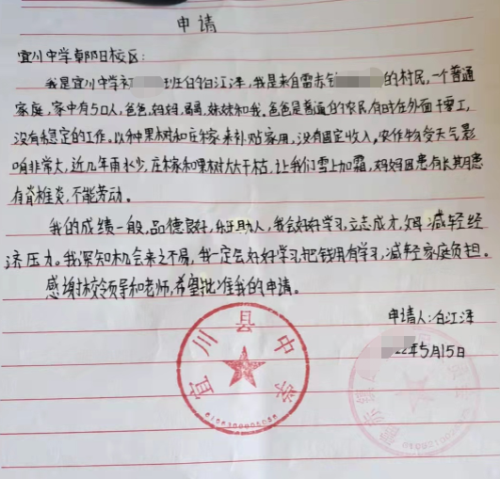 申请
宜川中学朝阳校区：
我是宜川中学初 班的白江泽，我是来自雷赤镇 的村民，一个普通
家庭，家中有5口人，爸爸，妈妈，哥哥，妹妹和我。爸爸是普通的农民，有时在外面干零工，
没有稳定的工作。以种果树和庄稼来补贴家用，没有固定收入，农作物受天气影
响非常大，近几年雨水少，庄稼和果树大大干枯，让我们雪上加霜，妈妈因患有长期患
有脊椎炎，不能劳动。
我的成绩一般，品德良好，乐于助人，我会好好学习，立志成才，减轻经
济压力。我深知机会来之不易，我一定会好好学习，把钱用有学习，减轻家庭负担。
感谢校领导和老师，希望批准我的申请。
申请人：白江泽
22年5月15日
宜川县中学